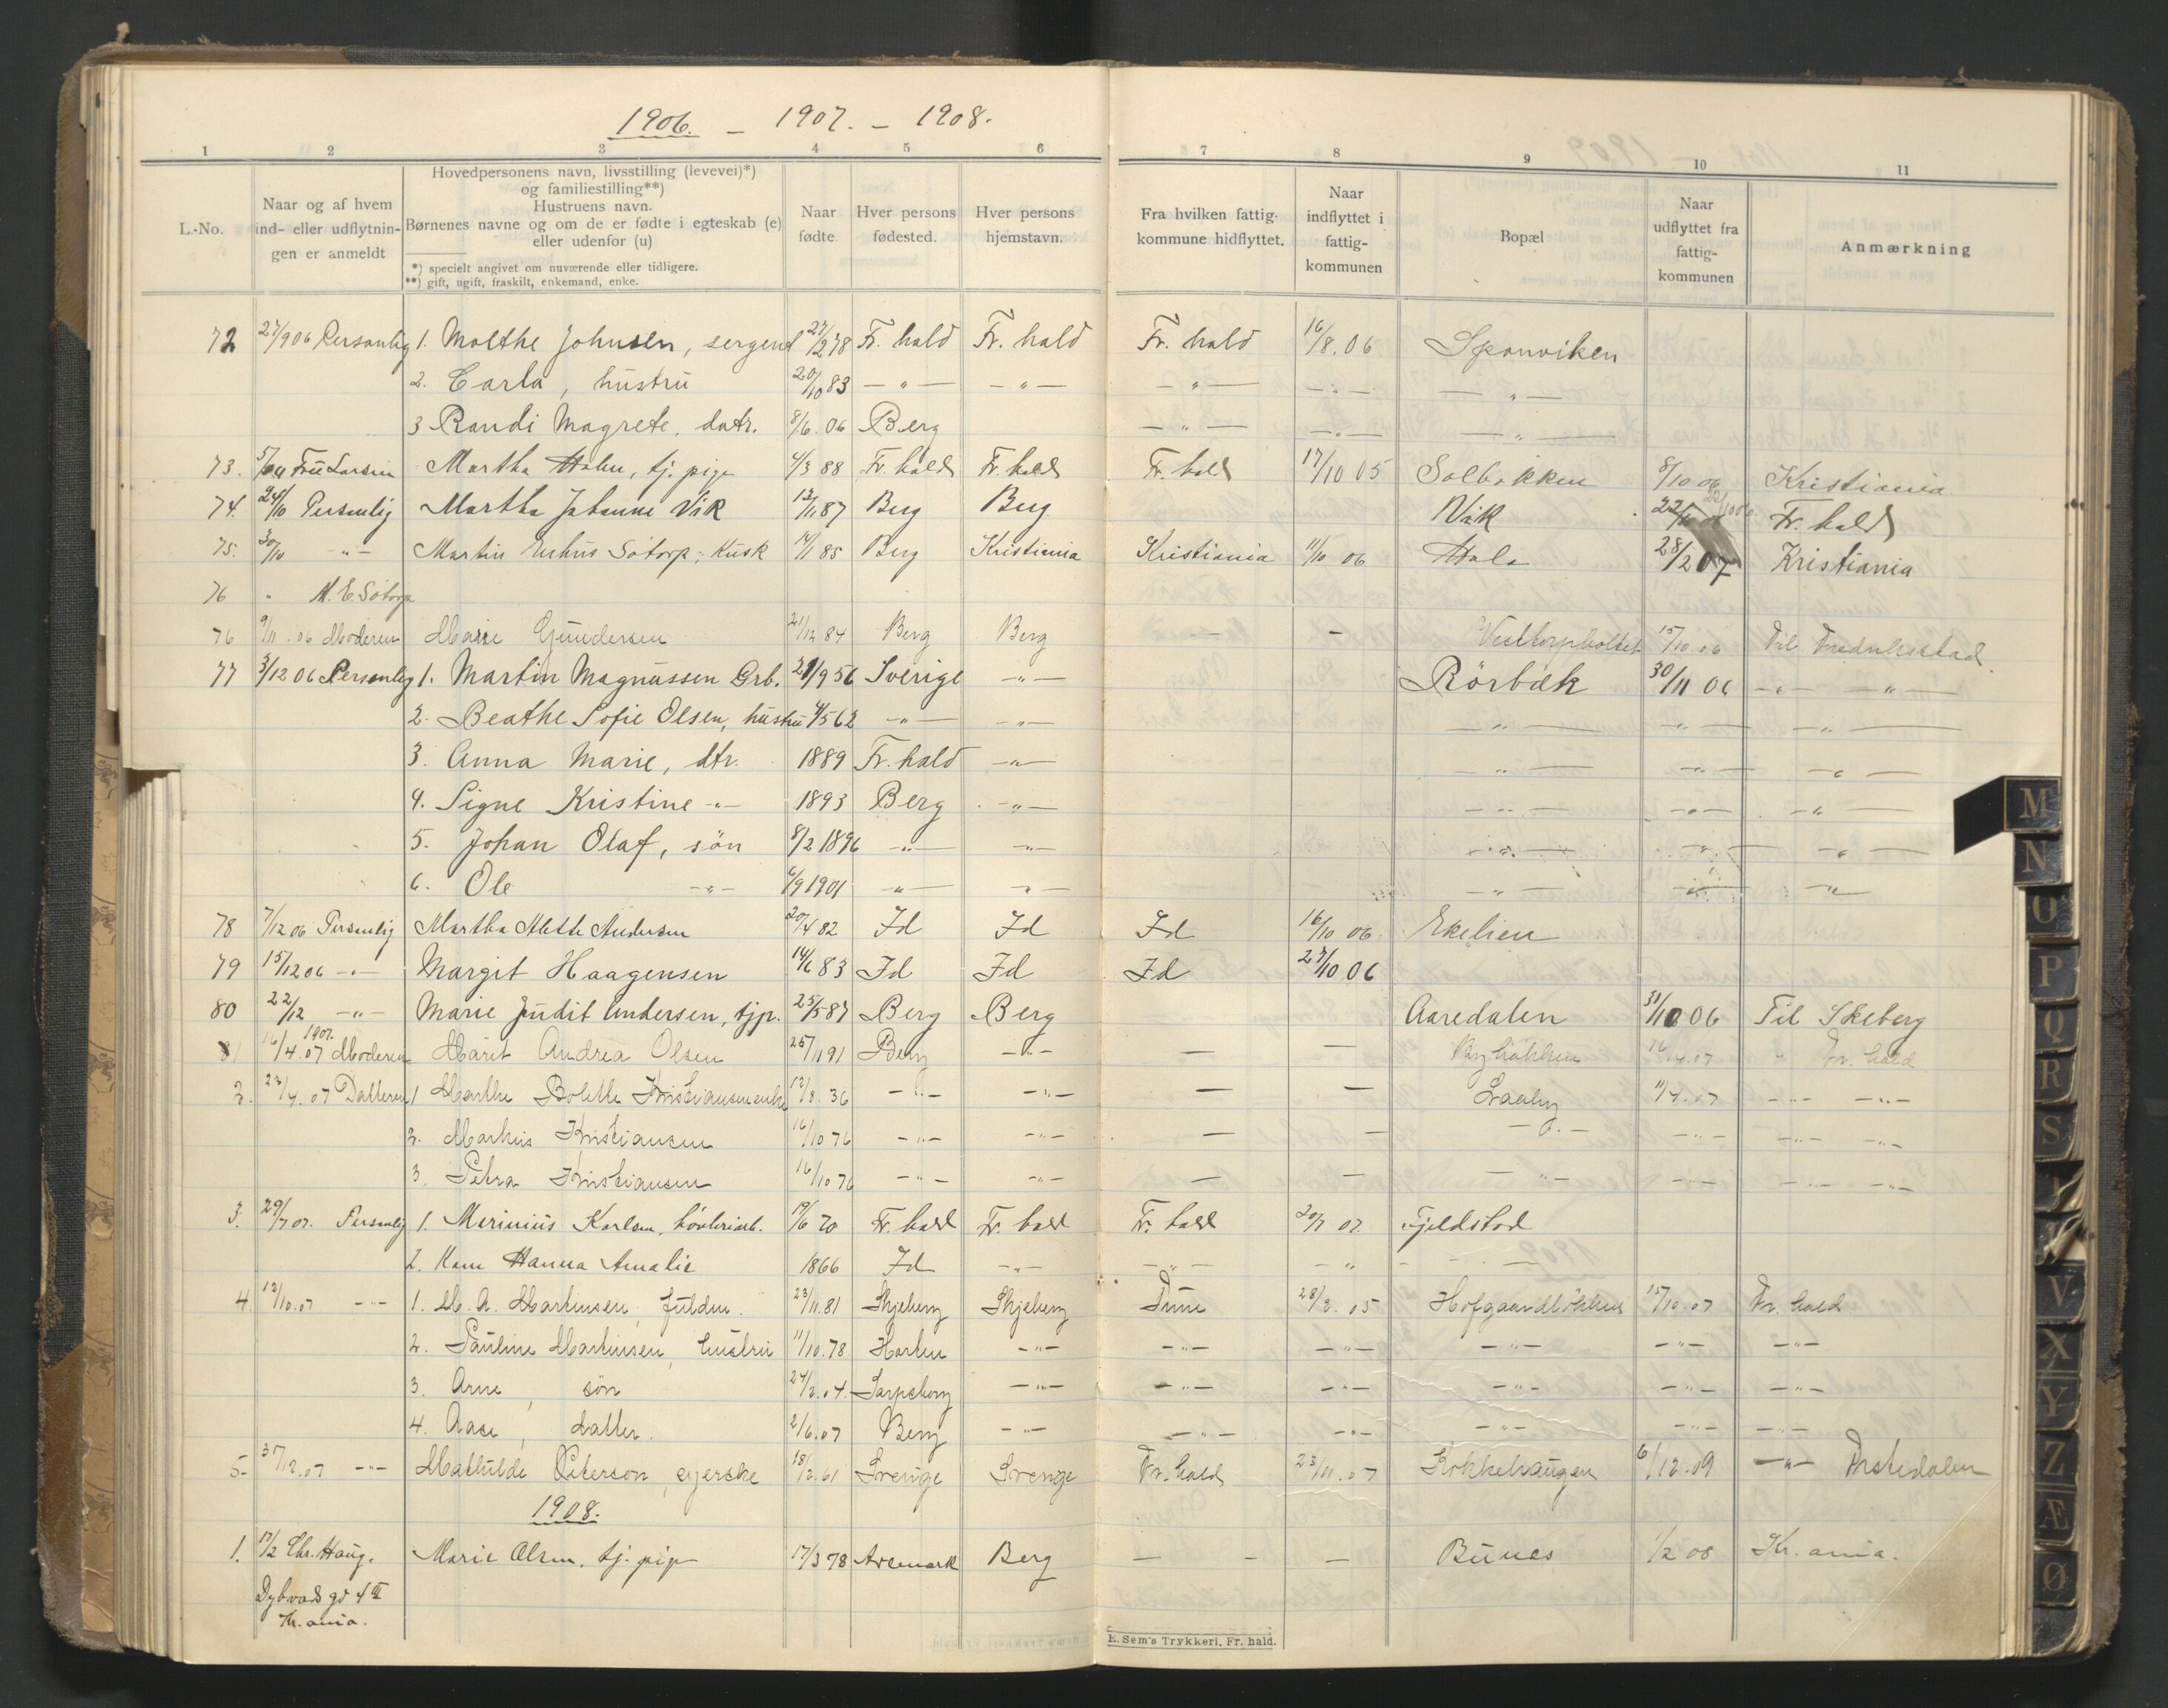 1906. – 1907. – 1908.
1 2 3 4 5 6 7 8 9 10 11
L.-No.
Naar og af hvem ind- eller udflytningen er anmeldt
Hovedpersonens navn, livsstilling (levevei)*)
og familiestilling**)
Hustruens navn.
Børnenes navne og om de er fødte i egteskab (e)
eller udenfor (u)
*) specielt angivet om nuværende eller tidligere.
**) gift, ugift, fraskilt, enkemand, enke.
Naar fødte
Hver persons fødested.
Hver persons hjemstavn.
Fra hvilken fattigkommune hidflyttet.
Naar indflyttet i fattigkommunen
Bopæl
Naar udflyttet fra fattigkommunen
Anmærkning
72 27/9 06 Personlig 1. Molthe Johnsen, sergent 27/2 78 Fr. hald Fr. hald Fr. hald 16/8. 06 Sponviken
2. Carla, hustru 20/10 83 — " — — " — — " — — " — — " —
3 Randi Magrete, datr. 8/6. 06 Berg — " — — " — — " —
73. Frue Larsen Martha Holm, tj. pige 4/3 88 Fr. hald Fr. hald Fr. hald 17/10 05 Solbakken 8/10 06 Kristiania
74. 24/10 Personlig Martha Johanne Vik 13/11 87 Berg Berg Vik Fr. hald
75. 30/10 - " - Martin Enhus Sotorp, Kusk 14/1 85 Berg Kristiania Kristiania 11/10 06 Hola 28/2 07 Kristiania
76 " M. E. Sotorp
76 9/11. 06 Moderen Marie Gundersen 21/12 84 Berg Berg – – Vesttorpholtet 15/10. 06 Til Fredrikstad.
77 3/12 06 Personlig 1. Martin Magnussen Grb. 21/9 56 Sverige — " — Rörbæk 30/11 06 — " — — " —
2. Beathe Sofie Olsen, hustru 4/5 62 — " — — " — — " — — " — — " —
3. Anna Marie, dtr. 1889 Fr. hald — " — — " — — " — — " —
4. Signe Kristine - " - 1893 Berg — " — — " — — " — — " —
5. Johan Olaf, sön 8/2 1896 — " — — " — — " — — " — — " —
6. Ole - " - 6/9 1901 — " — — " — — " — — " — — " —
78 7/12 06 Personlig Martha Alette Andersen 20/4 82 Id Id Id 16/10 06 Ekelien
79 15/12 06 - " - Margit Haagensen 14/6 83 Id Id Id 27/10 06
80 22/12 - " - Marie Judit Andersen, tjp. 25/5 87 Berg Berg Aaredalen 31/10 06 Til Skeberg
1907.
81 16/4. 07 Moderen Marit Andrea Olsen 25/11 91 Berg - " - — — 16/4. 07 " Fr. hald
2. 23/4. 07 Datteren 1 Marthe Bolette Kristiansen enke 12/8. 36 - " - - " - — — Laaby 11/4. 07 - " - - " -
2. Markus Kristiansen 16/10 76 - " - - " - — — - " - - " - - " - - " -
3. Petra Kristiansen 16/10 76 - " - - " - — — - " - - " - - " - - " -
3. 29/7 07. Personlig 1. Marinius Karlsen, 19/6 70 Fr. hald Fr. hald Fr. hald 20/7 07. Fjeldstad
2. Kone Hanna Amalie 1866 Id - " - - " - - " - - " -
4. 12/10. 07 - " - 1. M. A. Martinsen, 23/11. 81 Skjeberg Skjeberg Tune 28/2. 05 Hofgaardlökken 15/10. 07 Fr. hald
2. Pauline Martinsen, hustru 11/10. 78 Horten - " - - " - - " - - " - - " - - " -
3. Arne, sön 24/2. 04. Sarpsborg - " - - " - - " - - " - - " - - " -
4. Aase, datter. 2/6. 07 Berg - " - - " - - " - - " - - " - - " -
5- 37/12. 07 - " - Mathilde Peterson, syerske 18/2. 61 Sverige Sverige Fr. hald 23/11. 07 Kokkehaugen 6/12. 09 - " - Tistedalen
1908.
1. 17/2 Chr. Haug. Marie Olsen, tj. pige 17/3 78 Aremark Berg — – — Bunes 1/2 08 Kr. ania.
Dybvads gd 4 III
Kr. ania.
E. Sem's Trykkeri, Fr. hald.
M
N
O
P
Q
R
S
T
V
X
Y
Z
Æ
Ø